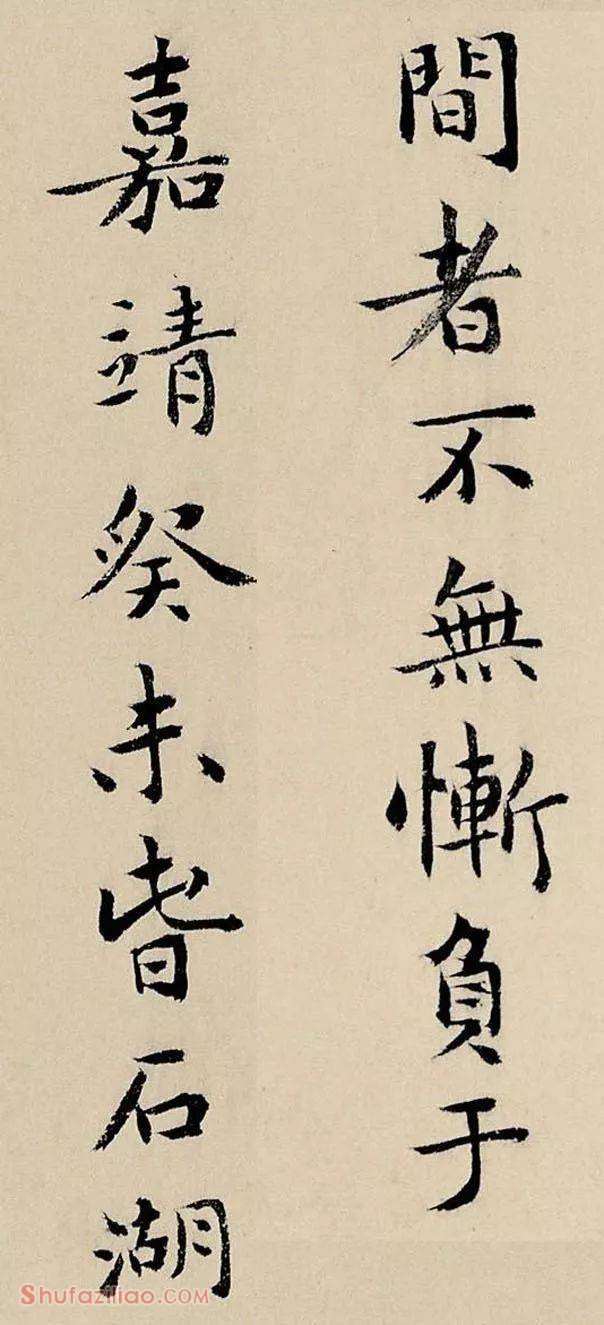 間者不無慚負于
嘉靖癸未春石湖
Shufaziliao.com